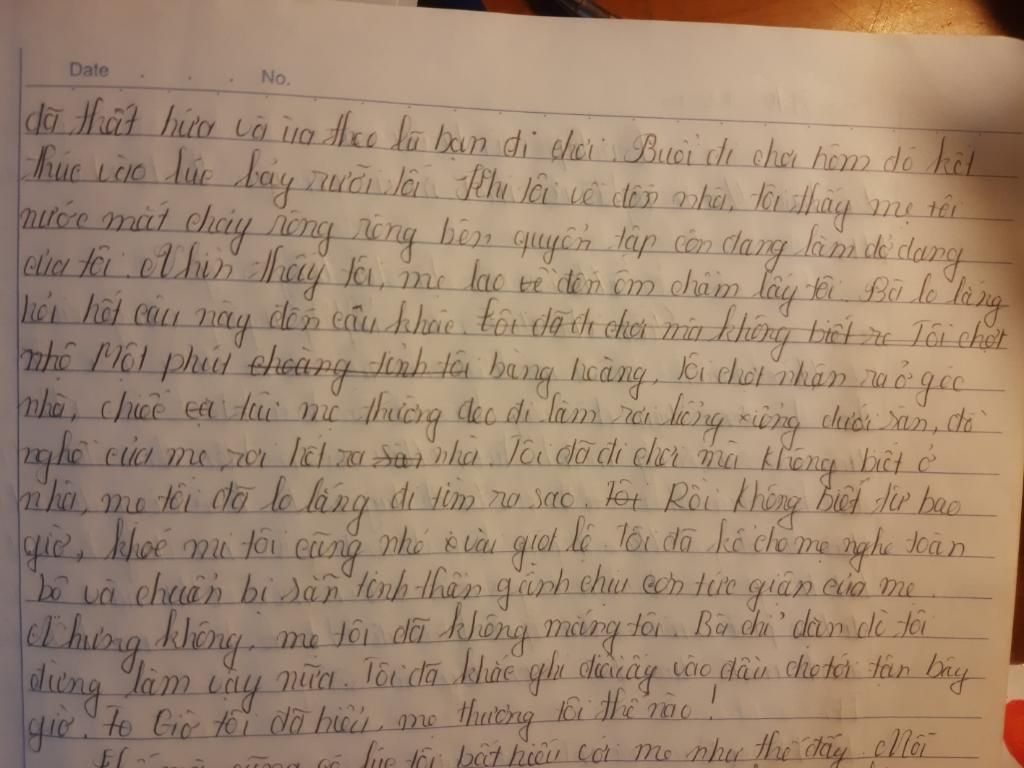 Date . . . No.
đã thất hứa và ùa theo lũ bạn đi chơi. Buổi đi chơi hôm đó kết
thúc vào lúc bảy rưỡi tối. Khi tôi về đến nhà, tôi thấy mẹ tôi
nước mắt chảy ròng ròng bên quyển tập còn đang làm dở dang
của tôi. Nhìn thấy tôi, mẹ lao về đến ôm chầm lấy tôi. Bà lo lắng
hỏi hết câu này đến câu khác. tôi đã đi chơi mà không biết ra Tôi chợt
nhớ Một phút choàng tỉnh tôi bàng hoàng, tôi chợt nhận ra ở góc
nhà, chiếc túi mẹ thường đeo đi làm rơi liểng xiểng dưới sàn, đồ
nghề của mẹ rơi hết ra sàn nhà. Tôi đã đi chơi mà không biết ở
nhà, mẹ tôi đã lo lắng đi tìm ra sao. Tôi Rồi không biết từ bao
giờ, khoé mi tôi cũng nhỏ vài giọt lệ. Tôi đã kể cho mẹ nghe toàn
bộ và chuẩn bị sẵn tinh thần gánh chịu cơn tức giận của mẹ.
Nhưng không, mẹ tôi đã không mắng tôi. Bà chỉ dặn dò tôi
đừng làm vậy nữa. Tôi đã khắc ghi điều ấy vào đầu cho tới tận bây
giờ. To Giờ tôi đã hiểu, mẹ thương tôi thế nào!
có lúc tôi bất hiếu với mẹ như thế đấy. Mỗi